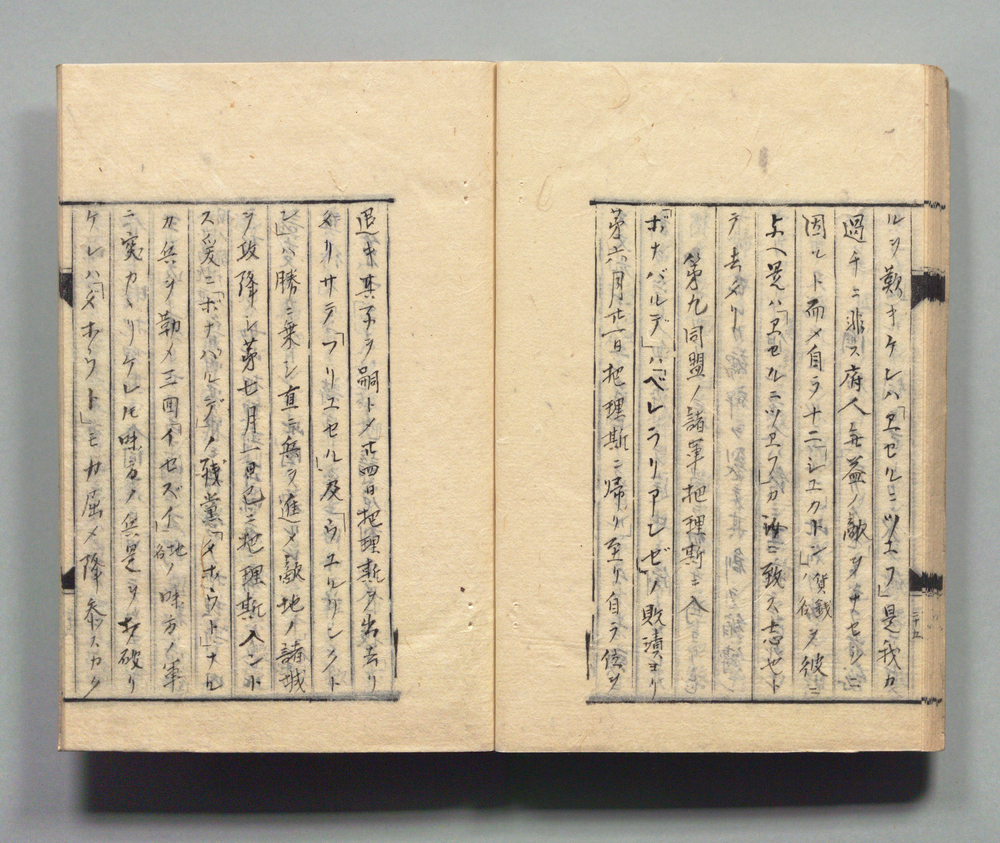 ルヲ歎キケレハ「ヱセルニツエフ」是我カ
過チニ非ス府人無益ノ敵ヲナセシニ
因ルト而〆自ラ十二「シユクトン」貨銭ノ名ヲ彼ニ
与ヘ是ハ「ヱセルニツヱフ」カ汝ニ致ス志ゼト
テ去タリ
第九同盟ノ諸軍把理斯ニ入
「ボナパルテ」ハ「ベレラリアンゼ」ノ敗潰ヨリ
第六月廿一日把理斯ニ帰リ至リ自ラ位ヲ
二十五
退キ其子ヲ嗣ト〆廿四日把理斯ヲ出去リ
タリサテ「フリユセル」及「ウエルリンクト
ン」勝ニ乗シ直ニ兵ヲ進メ敵地ノ諸城
ヲ攻降シ第七月一日已ニ把理斯入ント
ス爰ニ「ボナパルテ」ノ残黨「タホウト」ナル
カ兵ヲ勒〆三回イセズイ地名ノ味方ノ軍
ニ突カヽリケレ𪜈味方ノ兵是ヲ打破リ
ケレハ「タホウト」モカ屈〆降参ツスカク